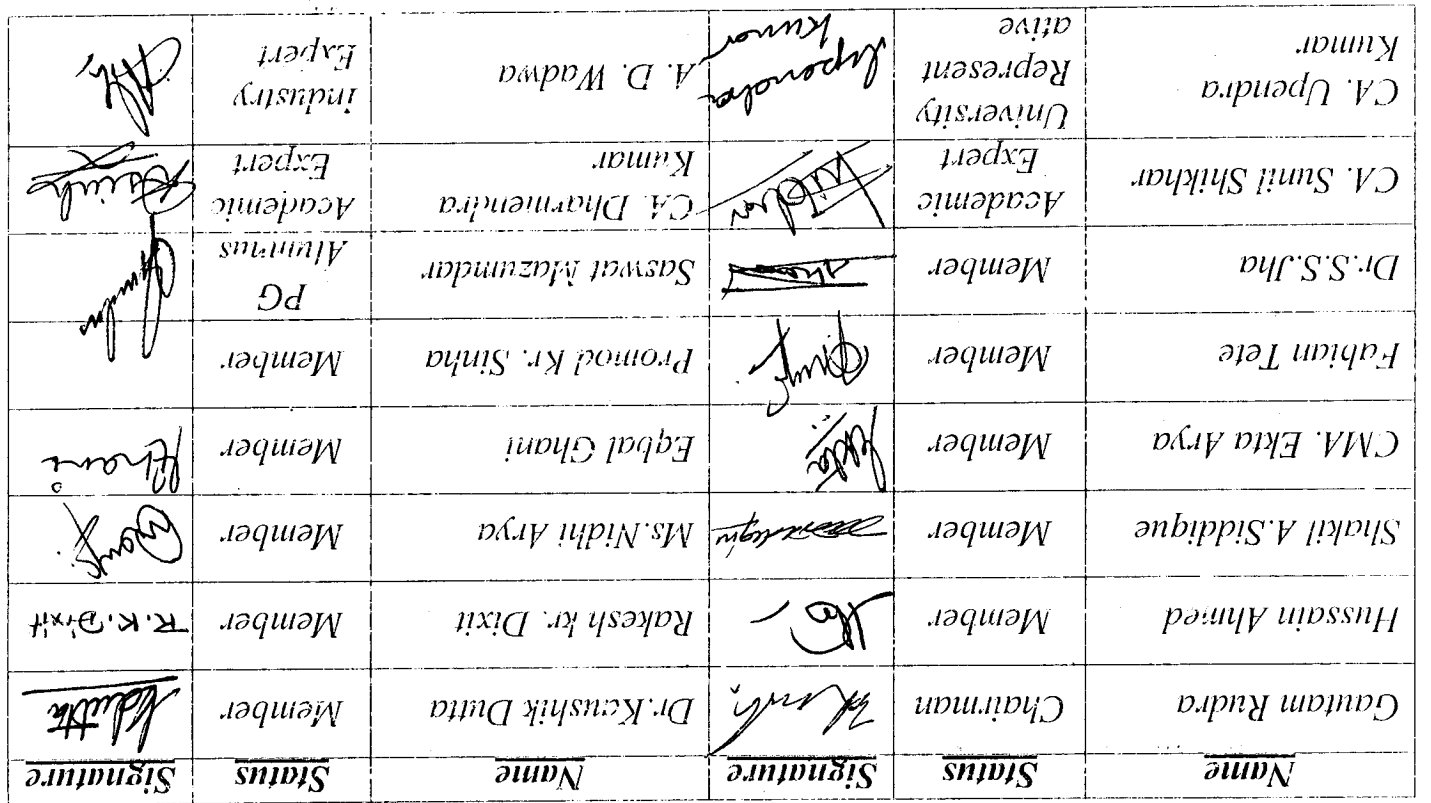 Name Status Signature Name Status Signature
Gautam Rudra Chairman Dr.Kaushik Dutta Member KDutta
Hussain Ahmed Member Rakesh kr. Dixit Member R.K.Dixit
Shakil A.Siddique Member Ms.Nidhi Arya Member
CMA. Ekta Arya Member Ekta Eqbal Ghani Member Ghani
Fabian Tete Member Promod Kr. Sinha Member
Dr.S.S.Jha Member Saswat Mazumdar PG
Alumnus
CA. Sunil Shikhar Academic CA. Dharmendra Academic
Expert Kumar Expert
CA. Upendra University Upendra A. D. Wadwa industry
Kumar Represent Kumar Expert
ative